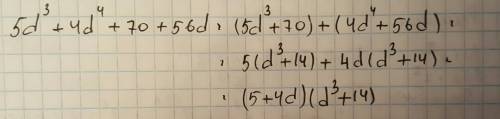 5d³ + 4d⁴ + 70 + 56d = (5d³ + 70) + (4d⁴ + 56d) =
= 5(d³ + 14) + 4d(d³ + 14) =
= (5 + 4d)(d³ + 14)